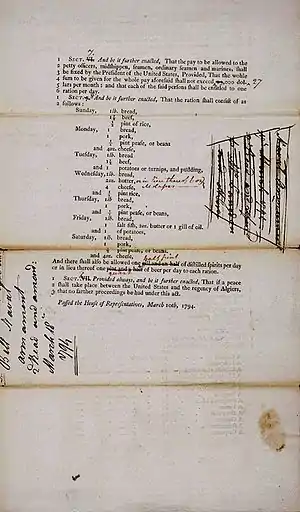 7.
1 SECT. And be it further enacted, That the pay to be allowed to the
2 petty officers, midshipmen, seamen, ordinary seamen and marines, shall
3 be fixed by the President of the United States, Provided, That the whole
4 sum to be given for the whole pay aforesaid shall not exceed ,000 dol- 27
5 lars per month; and that each of the said persons shall be entitled to one
6 ration per day.
1 SECT. 8. And be it further enacted, That the ration shall consist of as
2 follows:
Sunday, 1lb. bread,
1½ beef,
½ pint of rice,
Monday, 1 bread,
1 pork,
½ pint pease, or beans
and 4oz. cheese,
Tuesday, 1lb. bread,
1½ beef,
and 1 potatoes or turnips, and pudding,
Wednesday, 1lb. bread,
2oz. butter, or in lieu thereof 6 oz
molasses
4 cheese,
and ½ pint rice,
Thursday, 1lb bread,
1 pork,
and ½ pint pease, or beans,
Friday, 1lb bread,
1 salt fish, 2oz. butter or 1 gill of oil.
and 1 of potatoes,
Saturday, 1lb bread,
1 pork,
½ pint pease, or beans,
and 4oz. cheese,
half pint
And there shall also be allowed one gill and an half of distilled spirits per day
or in lieu thereof one pint and a half of beer per day to each ration.
quart
1 SECT. Provided always, and be it further enacted, That if a peace
2 shall take place between the United States and the regency of Algiers,
3 that no farther proceedings be had under this act.
Passed the House of Representatives, March 10th, 1794.
Bill Naval
armament
2 Read and amend:
March 18th
1794